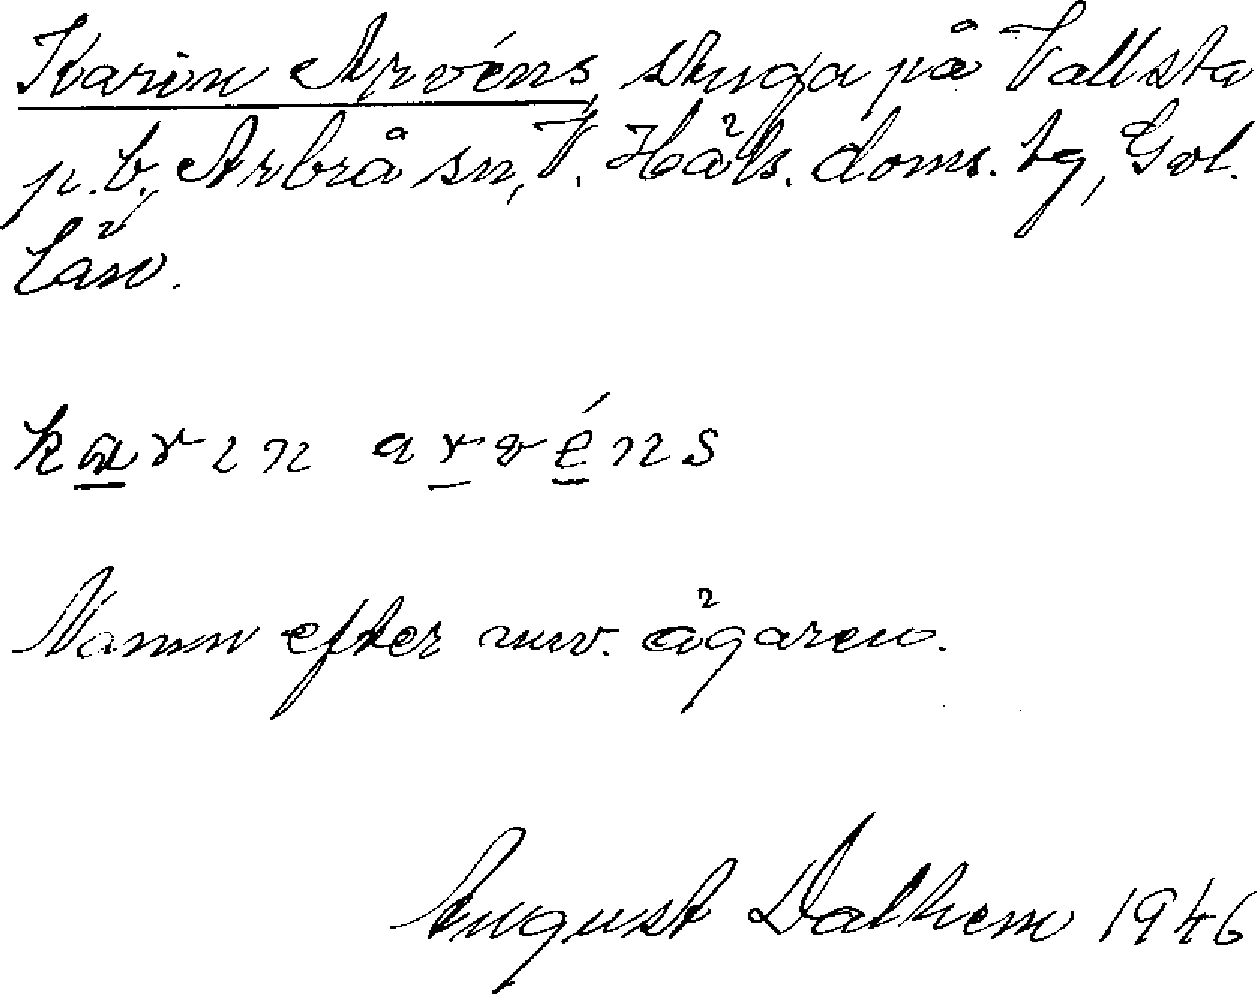 Karin Arvéns, stuga på Vallsta
p.b., Arbrå sn, V. Häls. doms. tg, Gvl.
län.
karin arvéns
Namn efter nuv. ägaren.
August Dalhem 1946